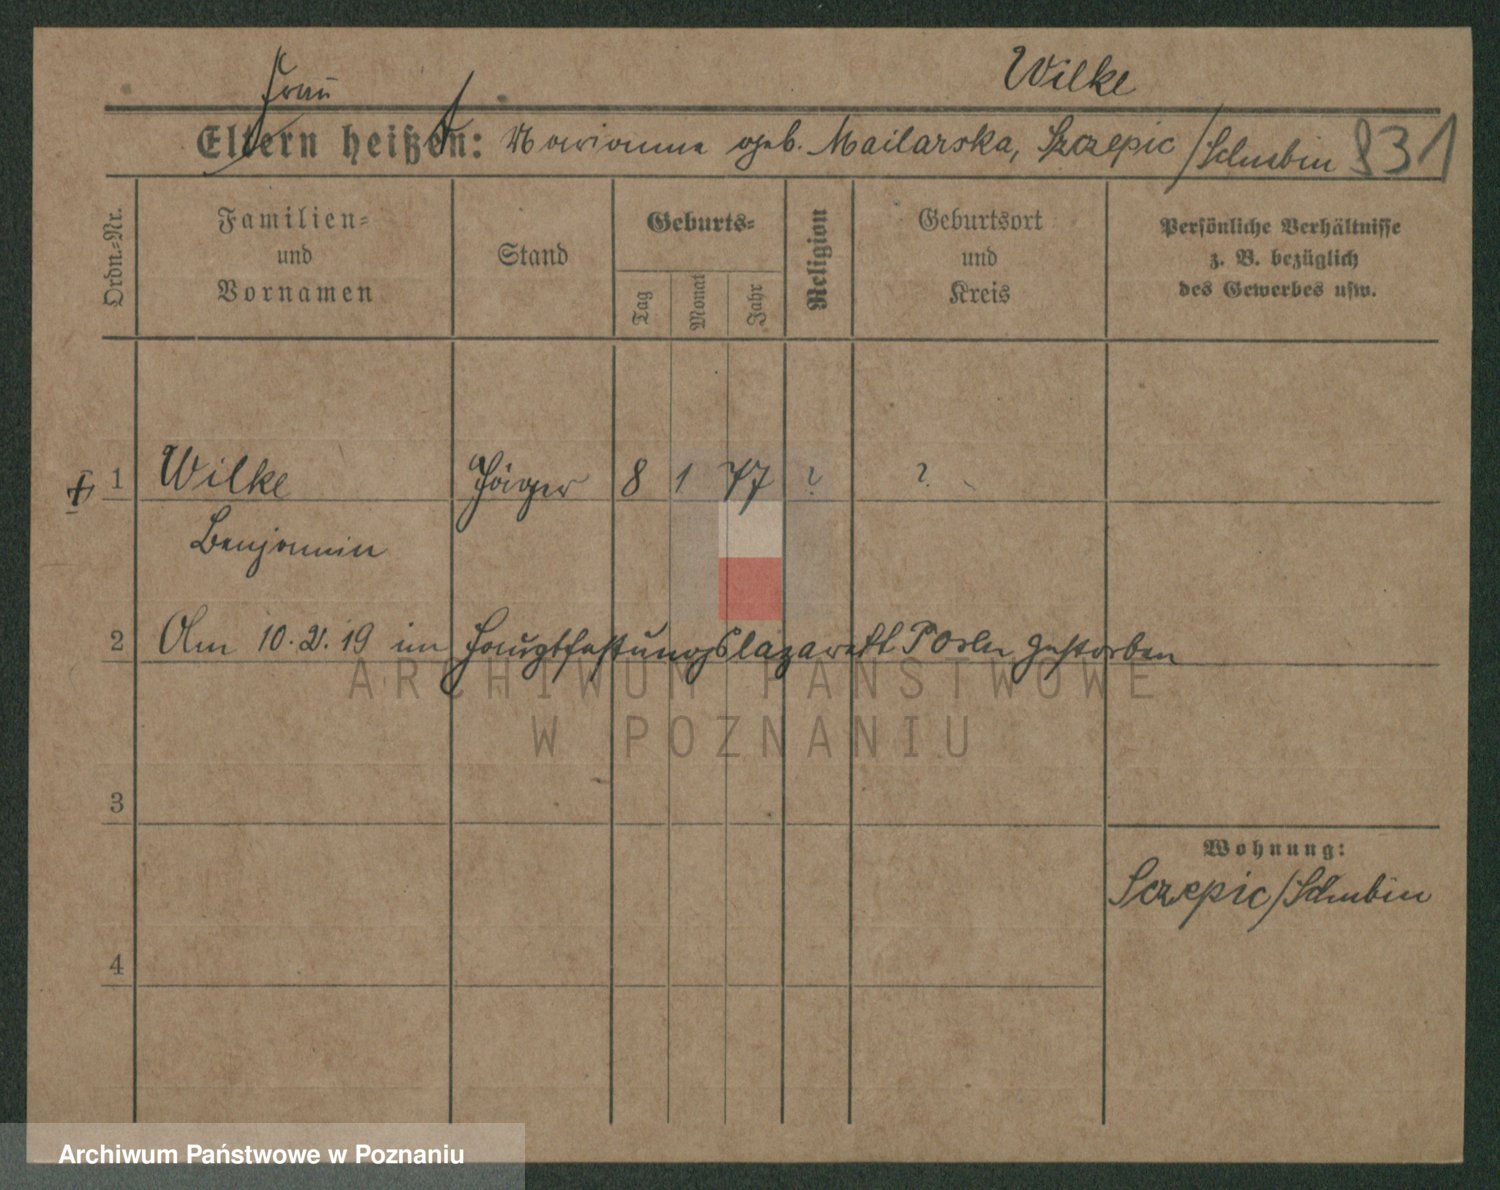 Wilke
Frau
Eltern heißen: Marianne geb. Mailarska, Szczepic / Schubin 831
Ordn.=Nr.
Familien=
und
Vornamen
Stand
Geburts=
Tag
Monat
Jahr
Religion
Geburtsort
und
Kreis
Persönliche Verhältnisse
z. B. bezüglich
des Gewerbes usw.
1 Wilke Jäger 8 1 77 ? ?
Benjamin
2 Am 10.2.19 im Hauptfestungslazarett Posen gestorben
ARCHIWUM PAŃSTWOWE
W POZNANIU
3
Wohnung:
Sczepic / Schubin
4
Archiwum Państwowe w Poznaniu